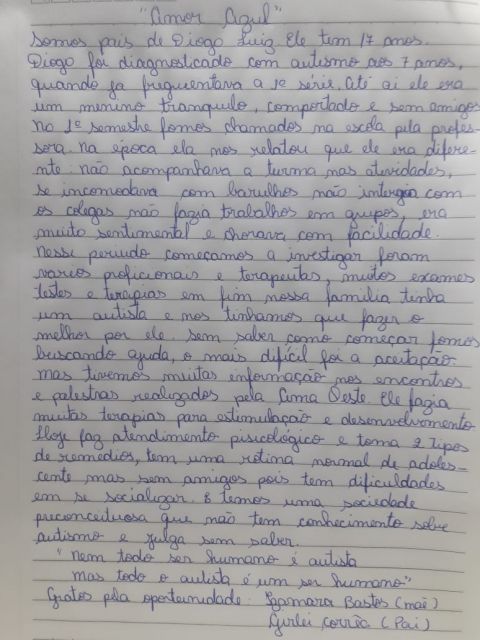 "Amor Azul"
Somos pais de Diogo Luiz. Ele tem 17 anos.
Diogo foi diagnosticado com autismo aos 7 anos,
quando já frequentava a 1ª série, até ai ele era
um menino tranquilo, comportado e sem amigos
no 1º semestre fomos chamados na escola pela profes-
sora na época ela nos relatou que ele era difere-
nte não acompanhava a turma nas atividades,
se incomodava com barulhos não intergia com
os colegas não fazia trabalhos em grupos, era
muito sentimental e chorava com facilidade.
nesse periodo começamos a investigar foram
varios proficionais e terapeutas, muitos exames
testes e terapias em fim nossa familia tinha
um autista e nos tinhamos que fazer o
melhor por ele. sem saber como começar fomos
buscando ajuda, o mais difícil foi a aceitação.
mas tivemos muitas informação nos encontros
e palestras realizados pela Cuma Oeste. Ele fazia
muitas terapias para estimulação e desenvolvimento
Hoje faz atendimento pisicológico e toma 2 tipos
de remédios, tem uma rotina normal de adoles-
cente mas sem amigos pois tem dificuldades
em se socializar. E temos uma sociedade
preconceituosa que não tem conhecimento sobre
autismo e julga sem saber.
"nem todo ser humano é autista
mas todo o autista é um ser humano"
Gratos pela oportunidade: Bastos (mãe)
Girlei Corrêa (Pai)